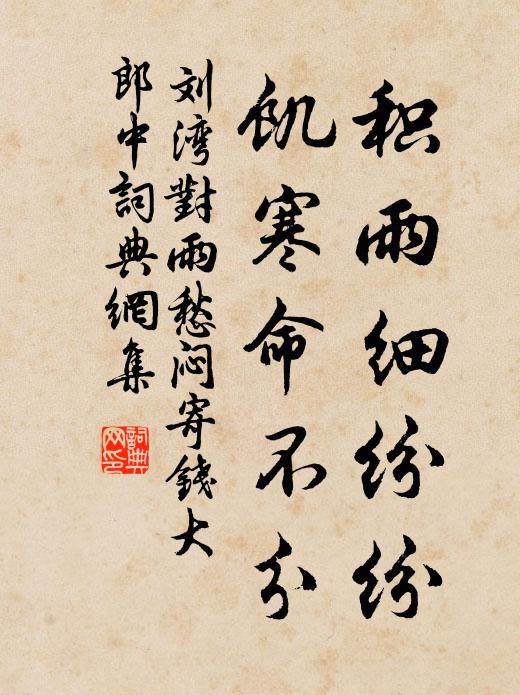 积雨细纷纷
飢寒命不分
刘湾對雨愁闷寄錢大
郎中詞典網集
詞典
网印